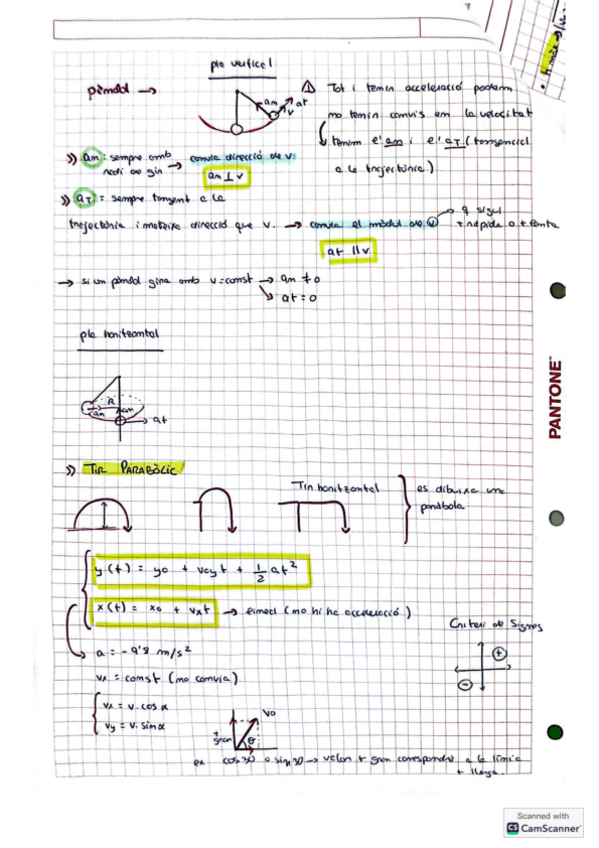 ple vertical
pèndol →
⚠ Tot i tenim acceleració podem
an at v
no tenim canvis em la velocitat
tenim l'an i l'aT (tangencial
a la trajectòria)
» an: sempre amb → canvia direcció de v.
radi de gir
an ⊥ v
» aT = sempre tangent a la
trajectòria i mateixa direcció que v. → canvia el mòdul de v → q sigui
+ ràpida o + lenta
at || v
→ si un pèndol gira amb v=const → an ≠ 0
↘ at = 0
ple horitzontal
R
an an
→ at
» TIR PARABÒLIC!
Tir horitzontal
es dibuixa una
paràbola
y(t) = y0 + v0yt + 1/2 at²
x(t) = x0 + vxt → lineal (no hi ha acceleració)
Criteri de Signes
+
−
a = -9'8 m/s²
vx = const (no canvia)
vx = v. cosα
vy = v. sinα
v0
+ gran θ
ex cos30 o sin30 → valor + gran correspondrà a la línia
+ llarga.
PANTONE™
Scanned with
CS CamScanner